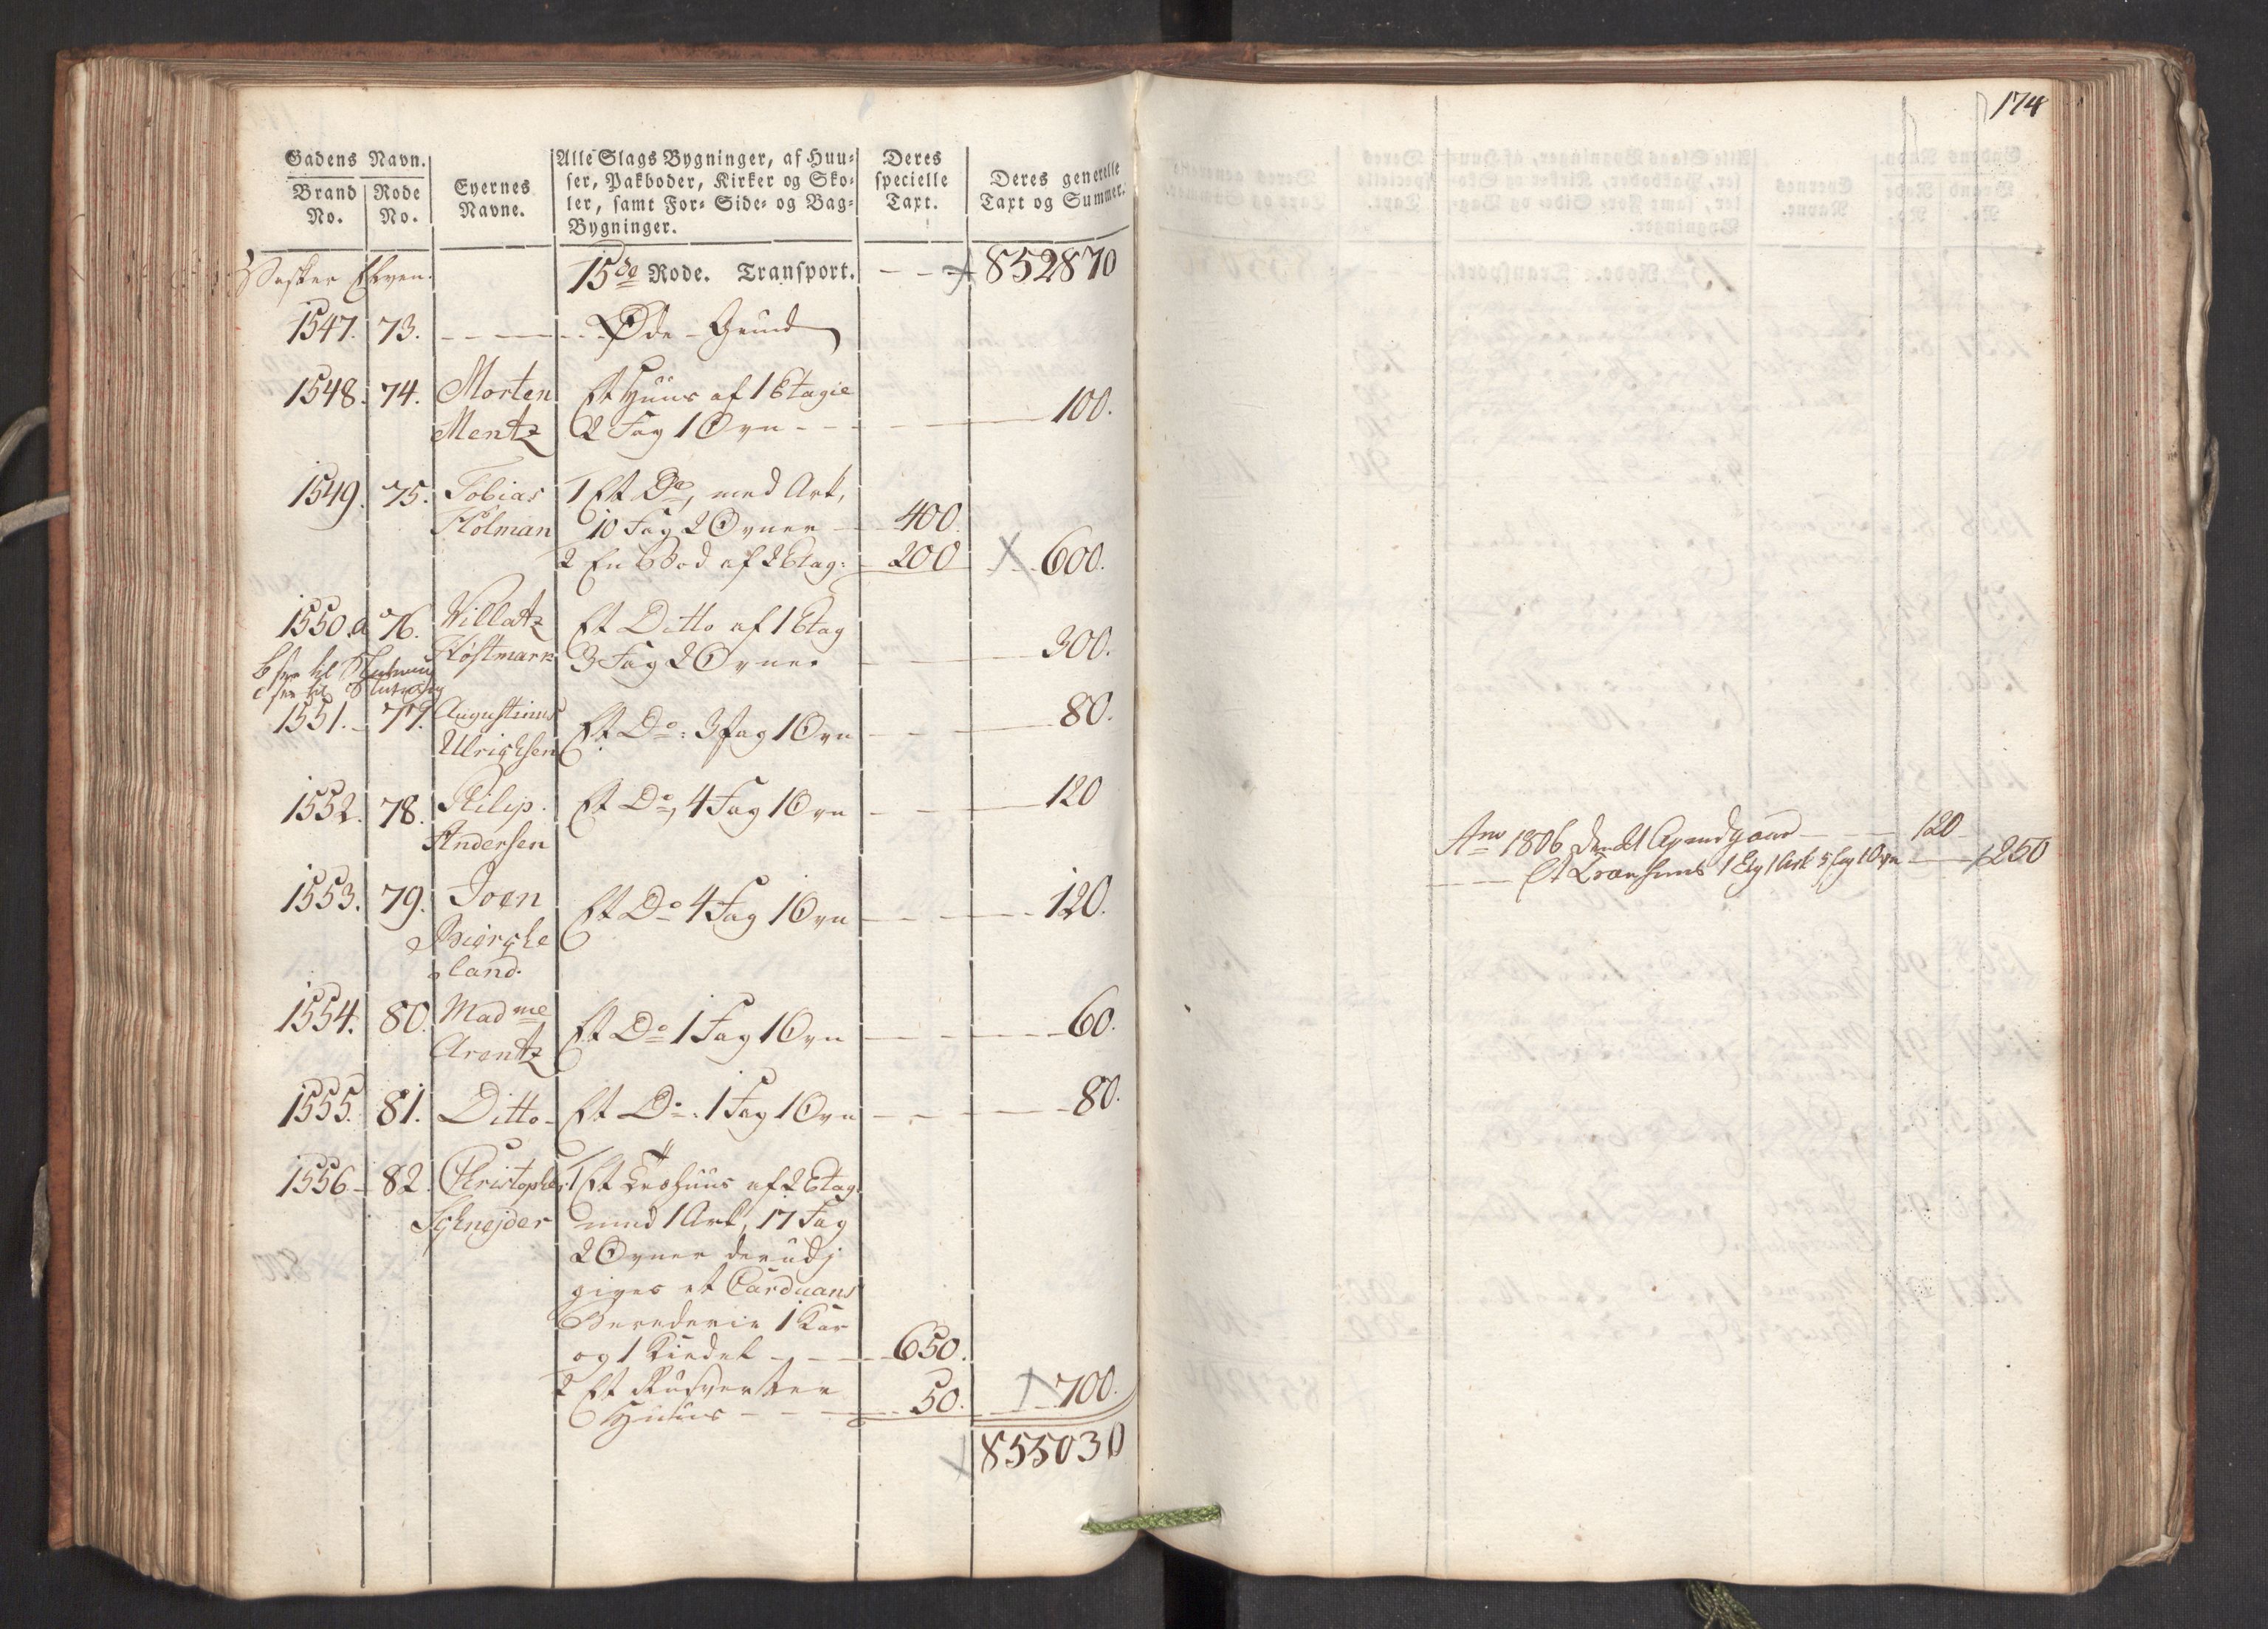 174
Gadens Navn.
Brand No.
Rode No.
Eyernes Navne.
Alle Slags Bygninger, af Huu-
ser, Pakboder, Kirker og Sko-
ler, samt For- Side- og Bag-
Bygninger.
Deres specielle Taxt.
Deres generelle Taxt og Summer.
15de Rode. Transport. - - 852870
1547. 73. - - - Øde-Grund
1548. 74. Morten Et Huus af 1 Etagie
Mentz 2 Fag 1 Ovn - - - 100.
1549. 75. Tobias 1 Et Do, med Ark,
Holman 10 Fag 2 Ovner - 400.
2 En Bod af 2 Etag: - 200 600.
1550.a 76. Willatz Et Ditto af 1 Etag
Høstmark 3 Fag 2 Ovner - - 300.
b see til
c see til
1551. - 77. Augustinus
Ulrichsen Et Do: 3 fag 1 Ovn - - 80.
1552. 78. Philip. Et Do, 4 Fag 1 Ovn - - 120
Andersen
1553. 79. Joen Et Do 4 Fag 1 Ovn - - 120.
Biørcke
land.
1554. 80. Madme Et Do 1 Fag 1 Ovn - - 60.
Arentz
1555. 81. Ditto - Et Do: 1 Fag 1 Ovn - - 80.
1556 - 82. Christopher 1 Et huus af 2 Etag.
Schnejder med 1 Ark, 17 Fag
2 Ovner derudj
gives et Carduans
Berederie 1 Kar
og 1 Kiedel - - 650.
2 Et
Huus - - 50. 700.
855030
Ano 1806 - - - 120
Et 1 Etg 1 Ark 5 fag 1 Ovn - 250